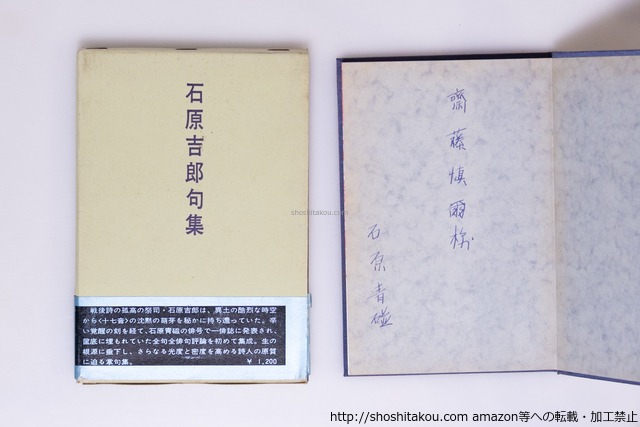 石原吉郎句集
戦後詩の孤高の祭司・石原吉郎は、異土の酷烈な時空
から〈十七音〉の沈黙の萌芽を秘かに持ち還っていた。辛
い覚醒の刻を経て、石原青磁の俳号で一俳誌に発表され、
筐底に埋もれていた全句全俳句評論を初めて集成。生の
根源に垂下し、さらなる光度と密度を高める詩人の原質
に迫る章句集。
¥ 1,200
齋藤慎爾様
石原青磁
shoshitakou.com
http://shoshitakou.com amazon等への転載・加工禁止